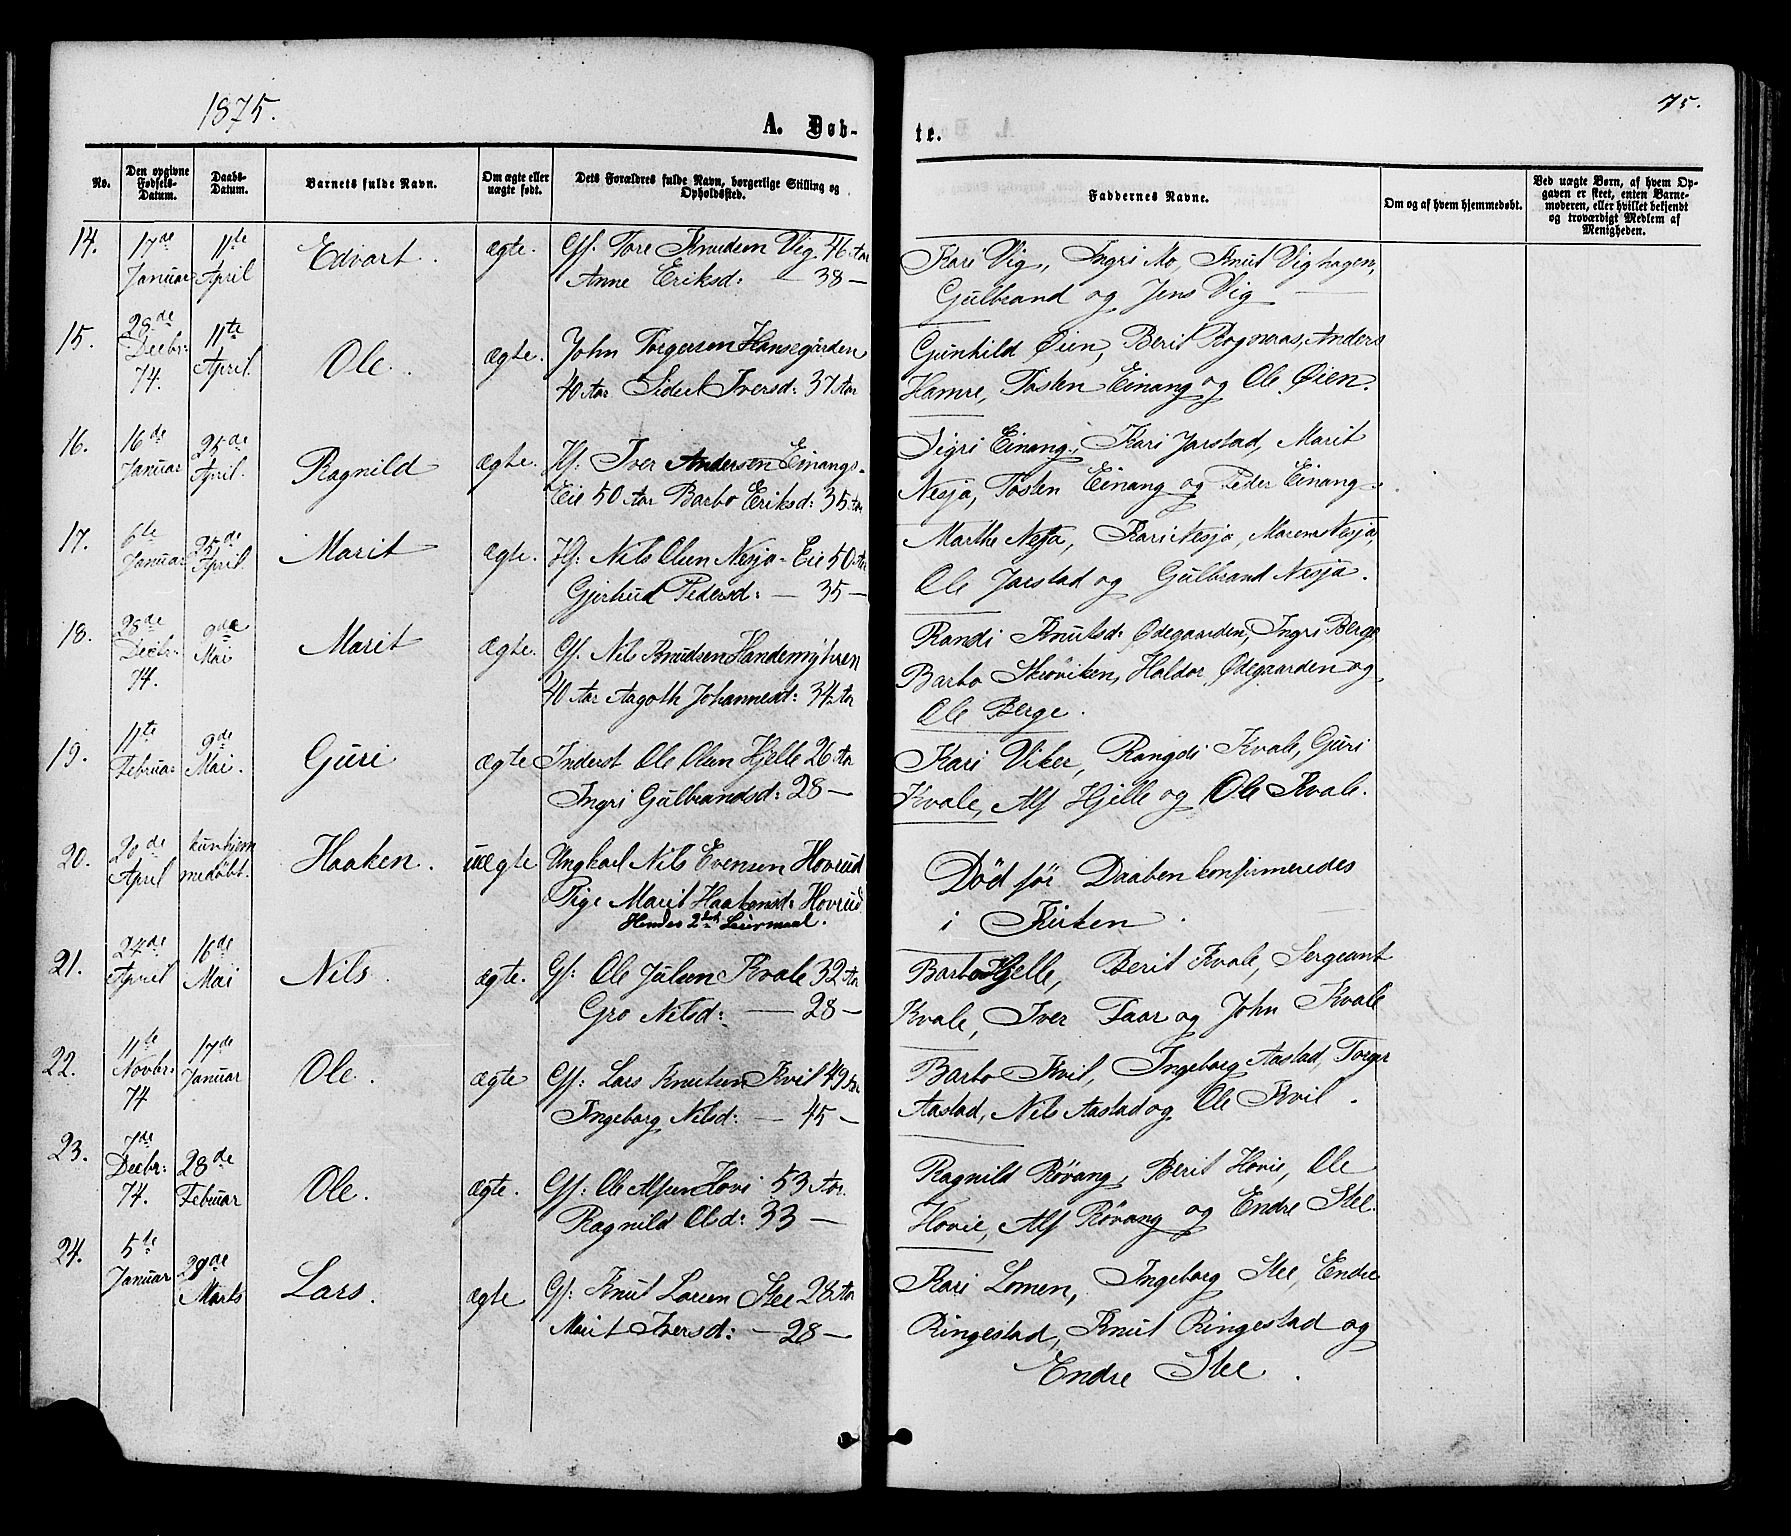 1875.
75.
A. Døb-
te.
No.
Den opgivne Fødsels-Datum.
Daabs-Datum.
Barnets fulde Navn.
Om ægte eller uægte født.
Dets Forældres fulde Navn, borgerlige Stilling og Opholdssted.
Faddernes Navne.
Om og af hvem hjemmedøbt.
Ved uægte Børn, af hvem Op-
gaven er skeet, enten Barne-
moderen, eller hvilket bekjendt
og troværdigt Medlem af
Menigheden.
14. 17de Januar 11te April Edvart. ægte. Gf. Tore Knudsen Vig. 46 Aar
Anne Eriksd: — 38 —
Kari Vig, Ingri Mo, Knut Vighagen,
Gulbrand og Jens Vig
15. 28de Decbr: 74. 11te April. Ole. ægte. John Torgersen Hansegården
40 Aar Sidsel Iversd: 37 Aar
Gunhild Øien, Berit Rogneaas, Anders
Hamre, Tosten Einang og Ole Øien.
16. 16de Januar 25de April. Ragnild ægte. Hf: Iver Andersen Einangs-
Eie 50 Aar Barbo Eriksd: 35 Aar
Sigri Einang, Kari Jarstad, Marit
Nesja, Tosten Einang og Peder Einang.
17. 6te Januar 25de April Marit ægte. Hf: Nils Olsen Nesja-Eie 50 Aar
Gjertrud Pedersd: — 35 —
Marthe Nesja, Kari Nesja, Maren Nesja,
Ole Jarstad og Gulbrand Nesja.
18. 28de Decbr: 74. 9de Mai Marit ægte. Gf. Nils Knudsen Handemyhren
40 Aar Aagoth Johannesd: 34 Aar
Randi Knutsd: Ødegaarden, Ingri Berge
Barbo Skrøviken, Haldor Ødegaarden og
Ole Berge.
19. 11te Februar 9de Mai. Guri ægte Inderst Ole Olsen Hjelle 26 Aar
Ingri Gulbrandsd: 28 —
Kari Viker, Rangdi Kvale, Guri
Kvale, Alf Hjelle og Ole Kvale.
20. 20de April kun hjem
medøbt. Haaken. uægte Ungkarl Nils Evensen Hovrud
Pige Marit Haakensd: Hovrud
Hendes 2det Leiermaal.
Død før Daaben konfirmeredes
i Kirken.
21. 24de April 16de Mai Nils. ægte. Gf: Ole Julsen Kvale 32 Aar
Gro Nilsd: — 28 —
Barbo Hjelle, Berit Kvale, Sergeant
Kvale, Iver Faar og John Kvale
22. 11te Novbr: 74 17de Januar Ole. ægte Gf: Lars Knutsen Kvil 49 Aar
Ingeborg Nilsd: — 45 —
Barbo Kvil, Ingeborg Aastad, Torger
Aastad, Nils Aastad og Ole Kvil.
23. 7de Decbr: 74. 28de Februar Ole. ægte. Gf: Ole Alfsen Hovi 53 Aar.
Ragnild Olsd: 33 —
Ragnild Røvang, Berit Hovie, Ole
Hovie, Alf Røvang og Endre Stee.
24. 5te Januar 29de Marts Lars. ægte Gf: Knut Larsen Stee 28 Aar
Marit Iversd: — 28 —
Kari Lomen, Ingeborg Stee, Endre
Ringestad, Knut Ringestad og
Endre Stee.